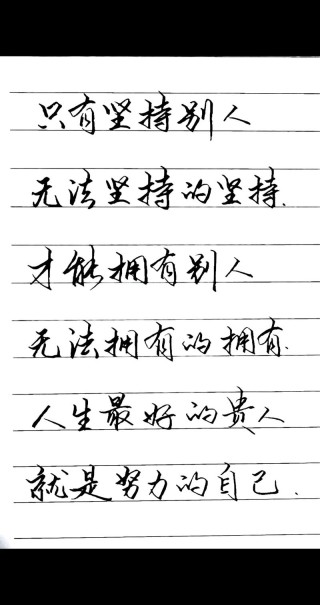 只有坚持别人
无法坚持的坚持.
才能拥有别人
无法拥有的拥有.
人生最好的贵人
就是努力的自己.